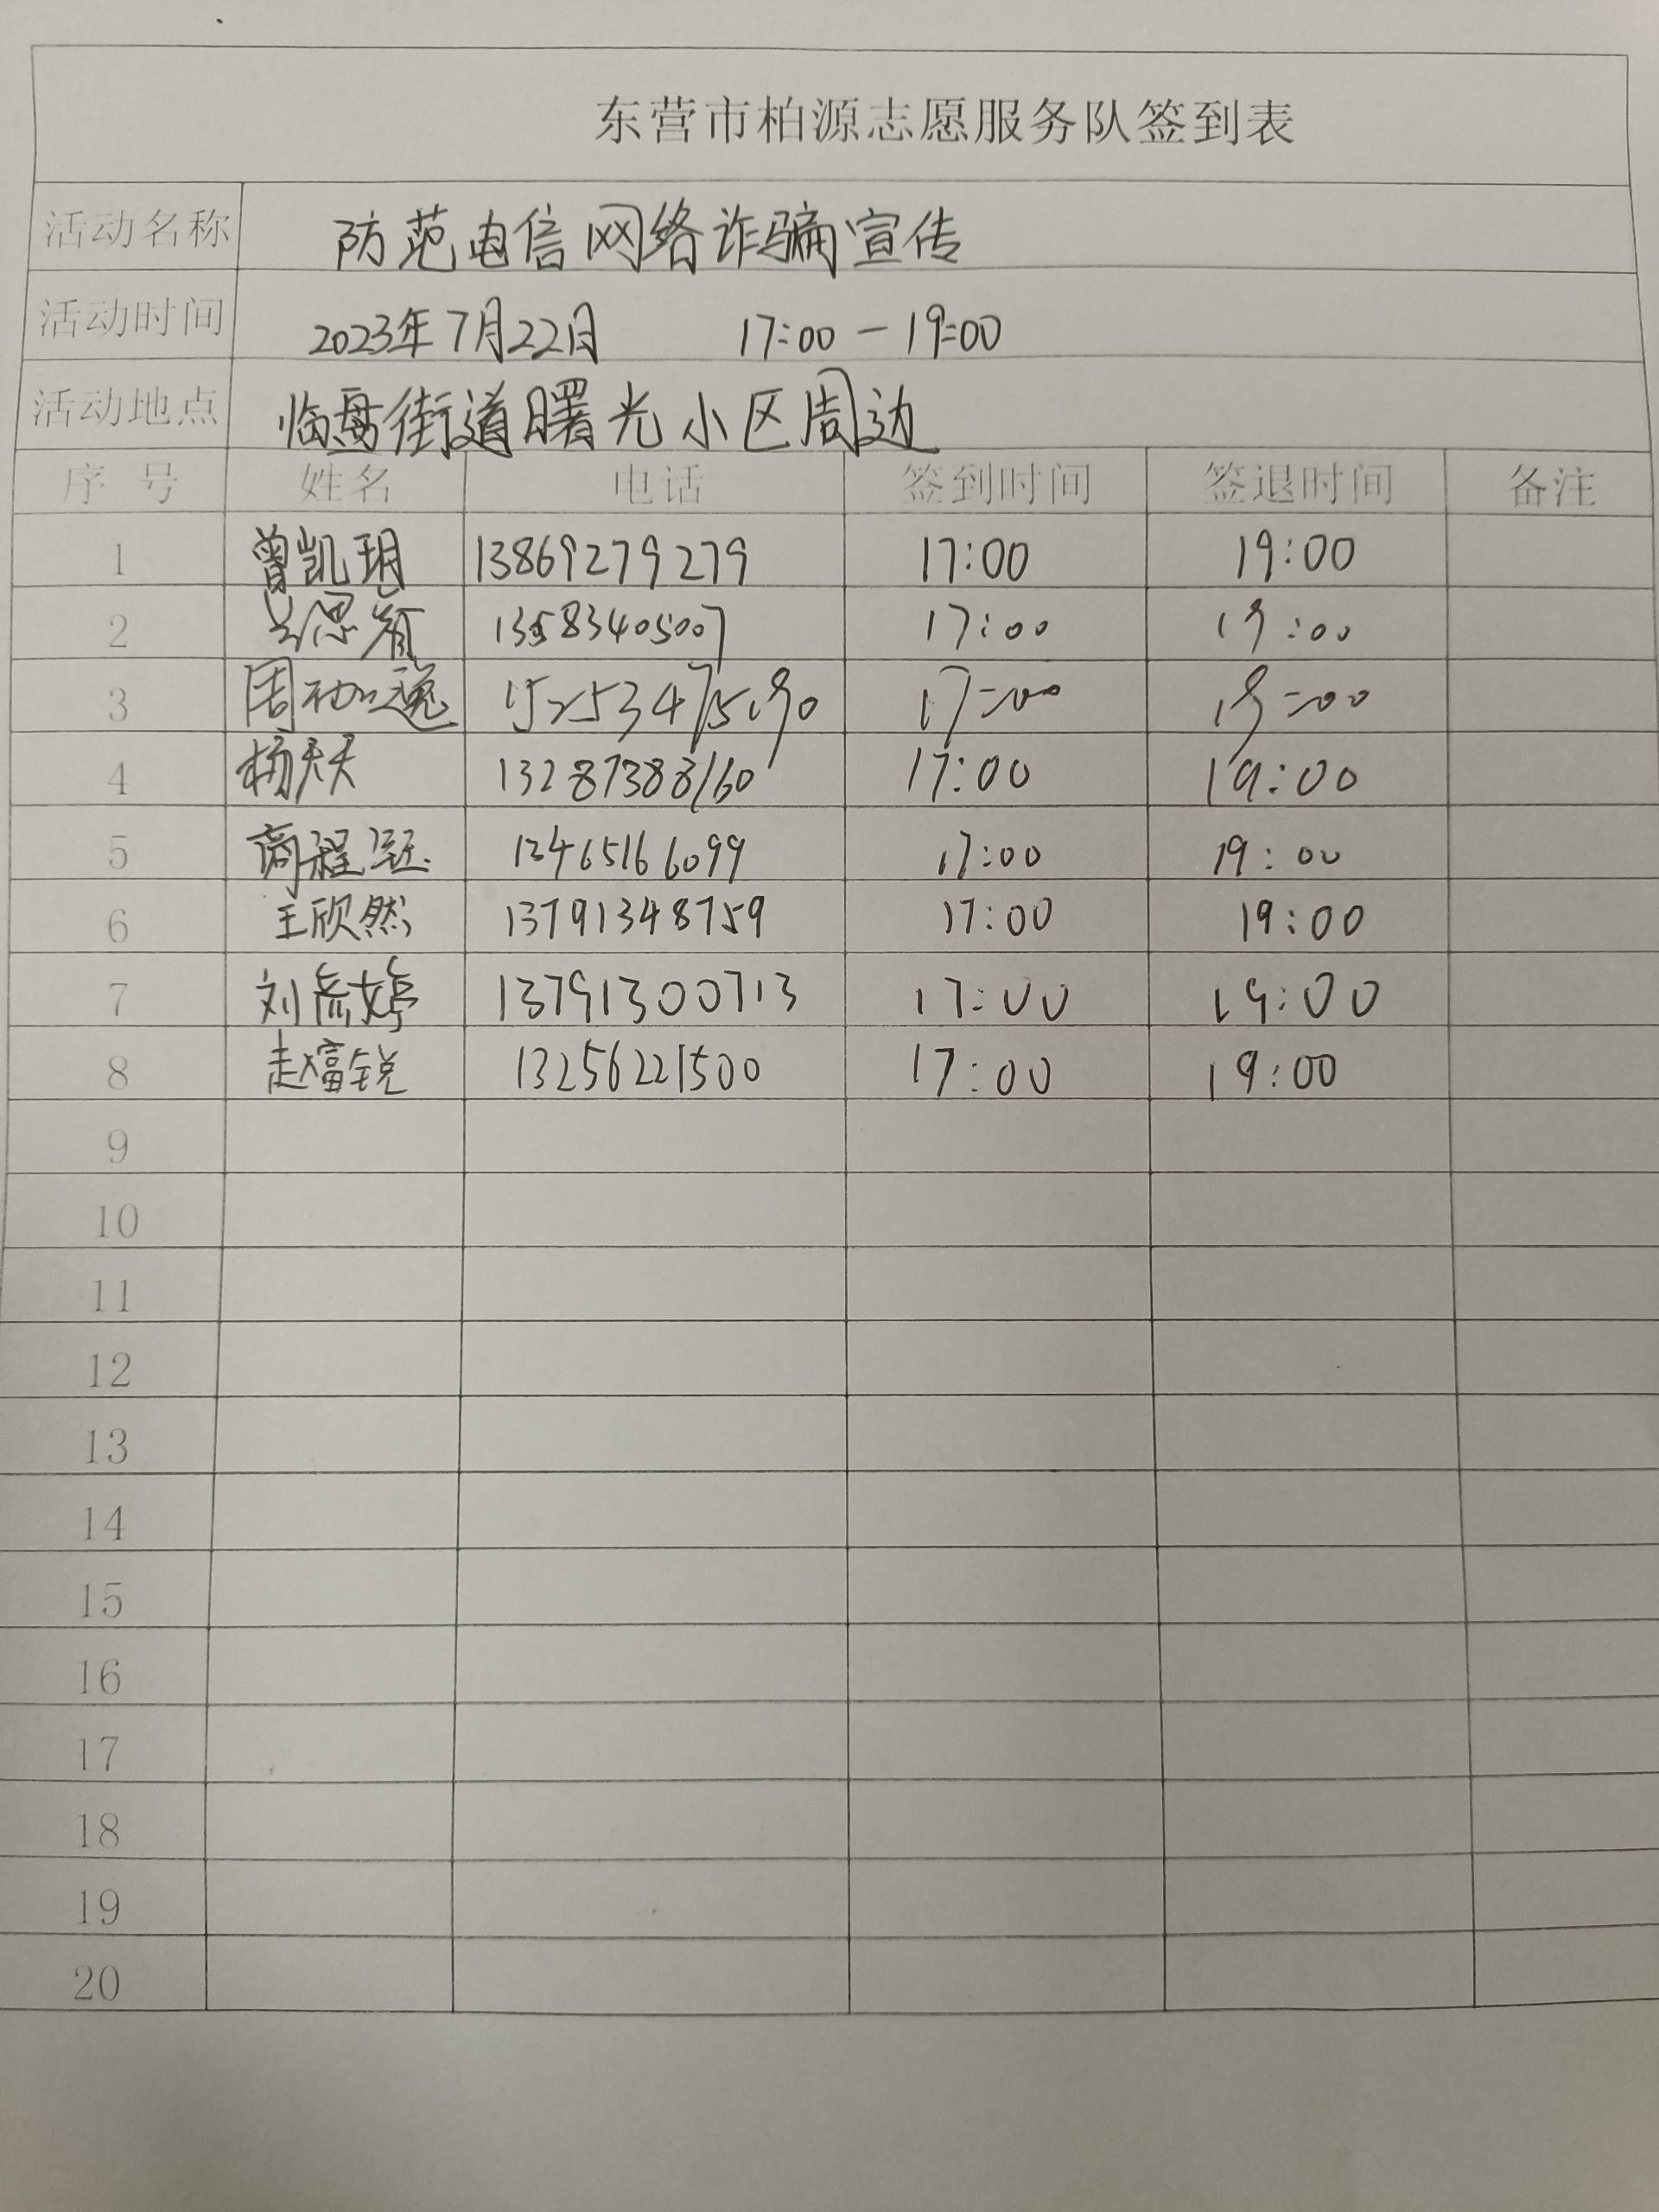 东营市柏源志愿服务队签到表
活动名称 防范电信网络诈骗宣传
活动时间 2023年7月22日 17:00-19:00
活动地点 临盘街道曙光小区周边
序号 姓名 电话 签到时间 签退时间 备注
1 曾凯玥 13869279279 17:00 19:00
2 13583405007 17:00 19:00
3 17:00 19:00
4 杨天天 13287388160 17:00 19:00
5 13465166099 17:00 19:00
6 王欣然 13791348759 17:00 19:00
7 刘彦婷 13791300713 17:00 19:00
8 赵富锐 13256221500 17:00 19:00
9
10
11
12
13
14
15
16
17
18
19
20